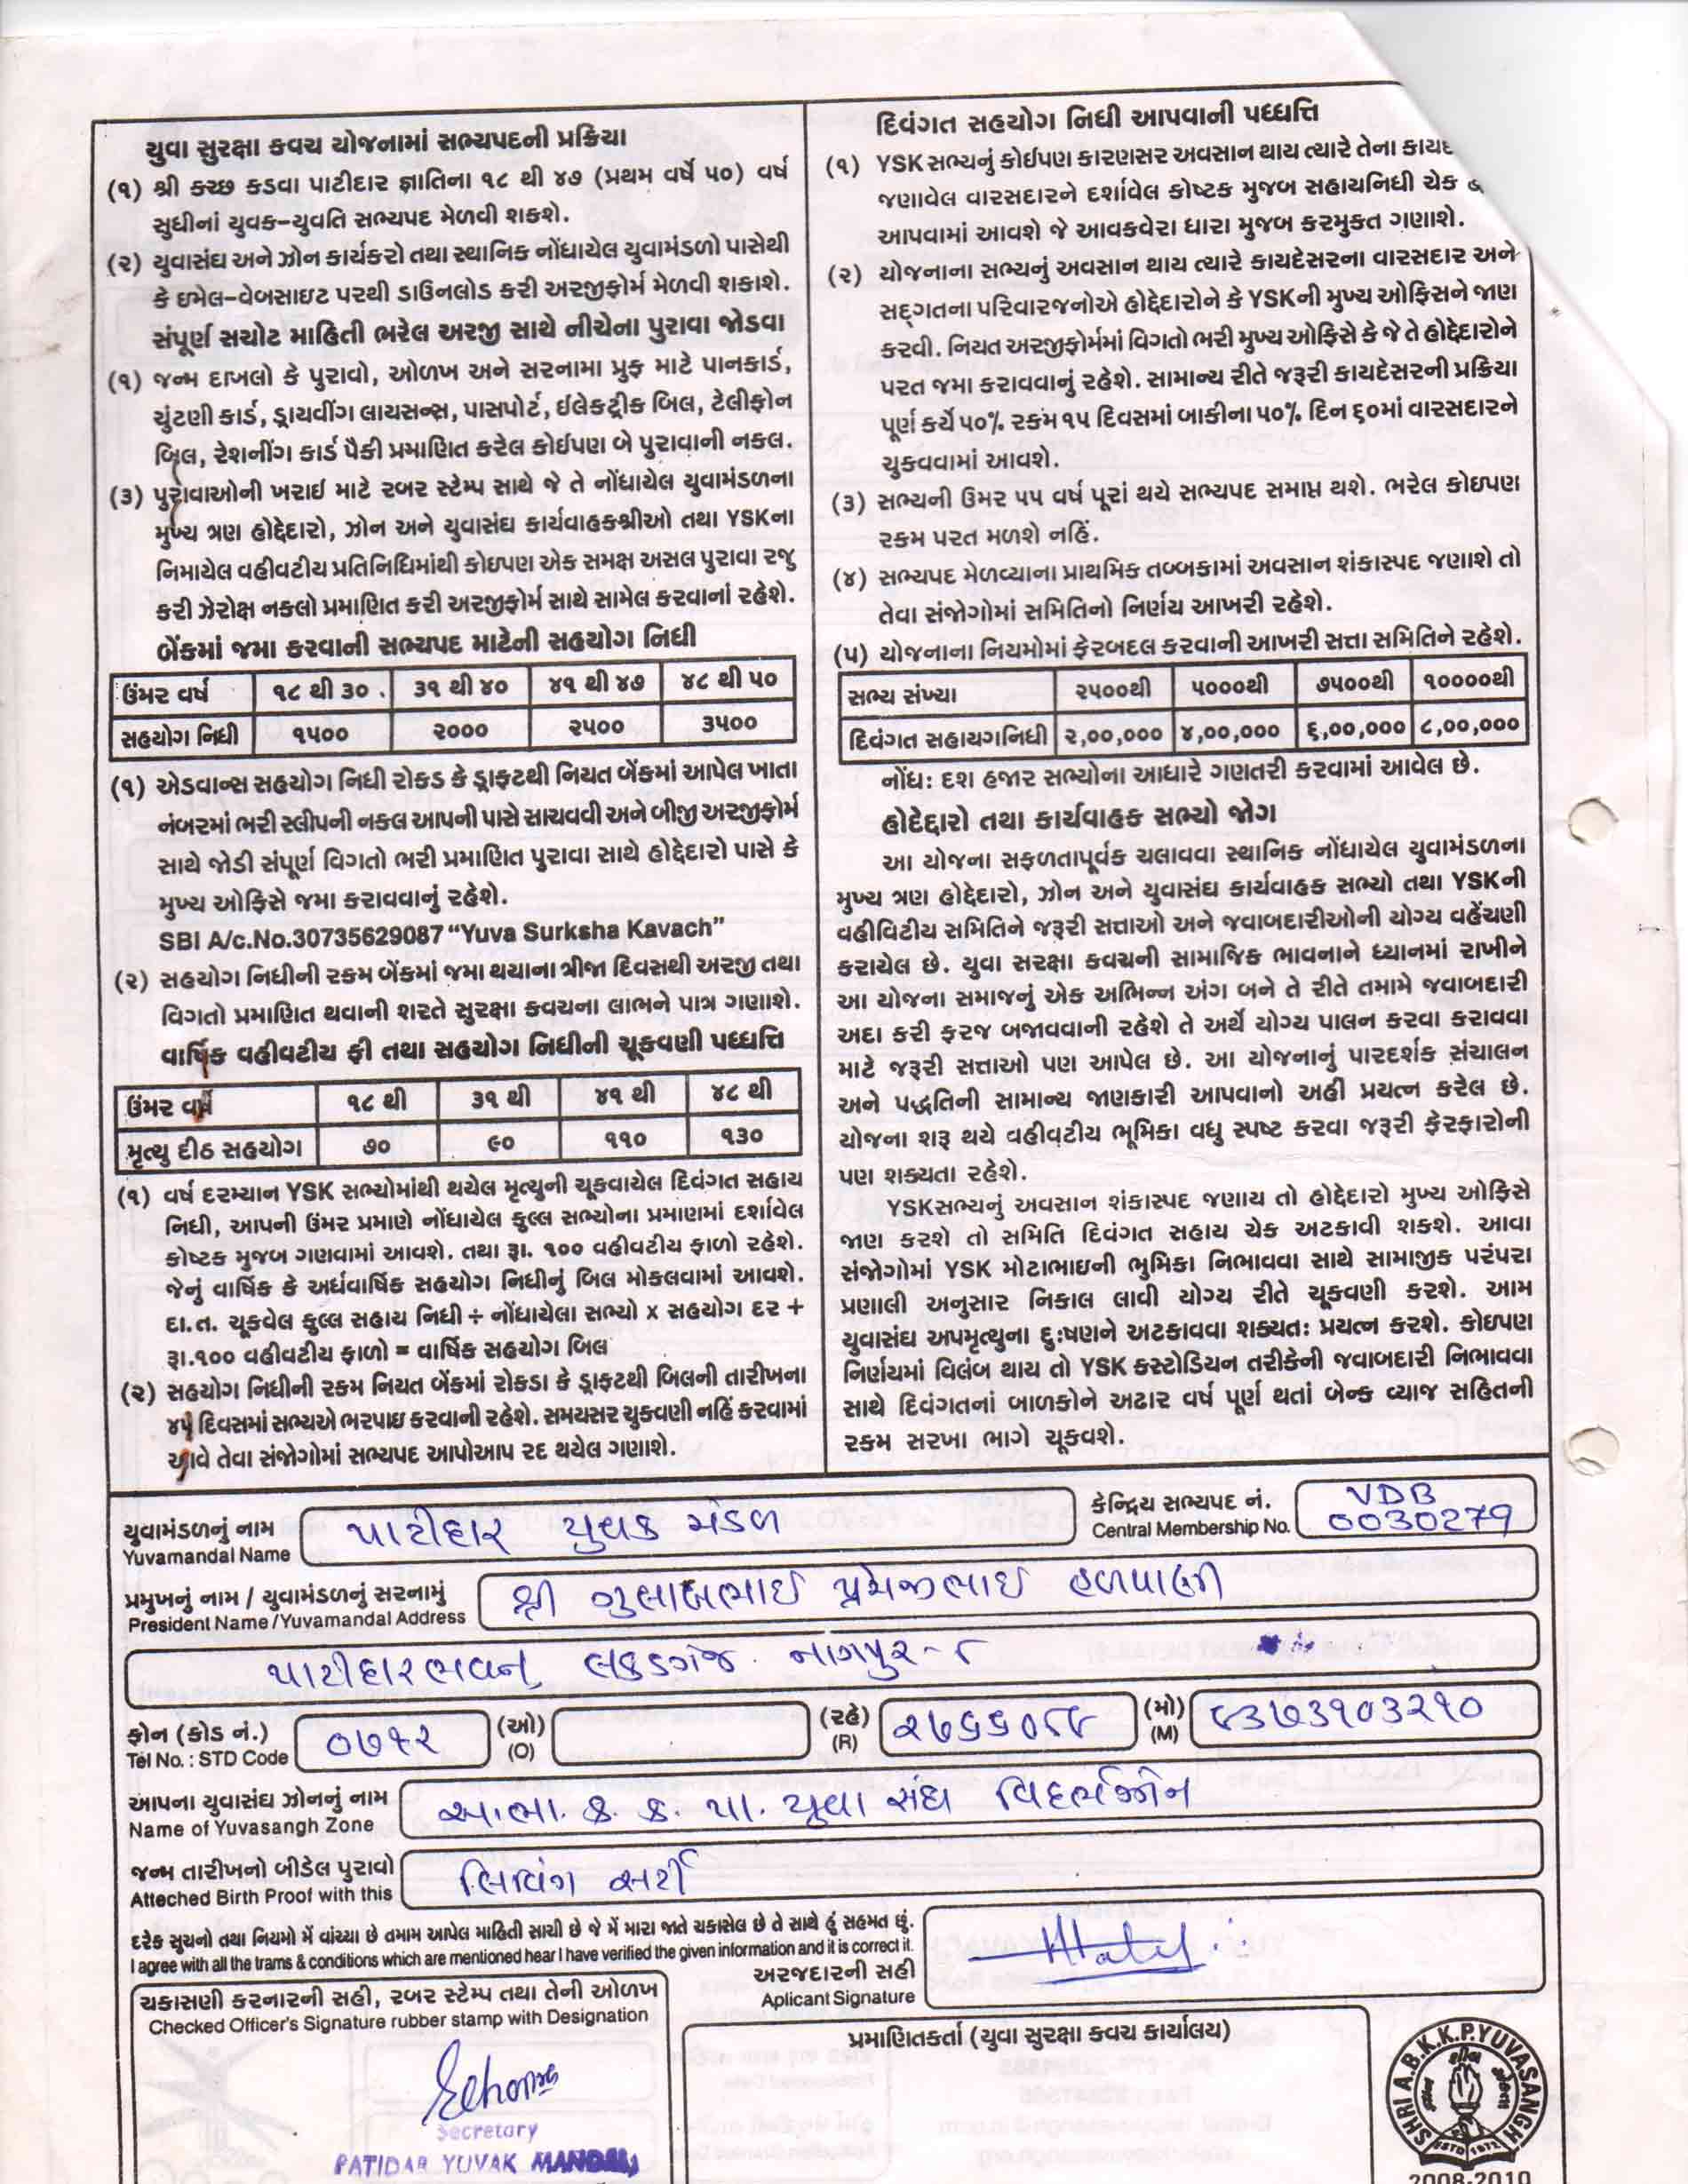 યુવા સુરક્ષા કવચ યોજનામાં સભ્યપદની પ્રક્રિયા
(૧) શ્રી કચ્છ કડવા પાટીદાર જ્ઞાતિના ૧૮ થી ૪૭ (પ્રથમ વર્ષે ૫૦) વર્ષ
સુધીનાં યુવક-યુવતિ સભ્યપદ મેળવી શકશે.
(૨) યુવાસંઘ અને ઝોન કાર્યકરો તથા સ્થાનિક નોંધાયેલ યુવામંડળો પાસેથી
કે ઇમેલ-વેબસાઇટ પરથી ડાઉનલોડ કરી અરજીફોર્મ મેળવી શકાશે.
સંપૂર્ણ સચોટ માહિતી ભરેલ અરજી સાથે નીચેના પુરાવા જોડવા
(૧) જન્મ દાખલો કે પુરાવો, ઓળખ અને સરનામા પ્રુફ માટે પાનકાર્ડ,
ચુંટણી કાર્ડ, ડ્રાયવીંગ લાયસન્સ, પાસપોર્ટ, ઈલેકટ્રીક બિલ, ટેલીફોન
બિલ, રેશનીંગ કાર્ડ પૈકી પ્રમાણિત કરેલ કોઈપણ બે પુરાવાની નકલ.
(૩) પુરાવાઓની ખરાઈ માટે રબર સ્ટેમ્પ સાથે જે તે નોંધાયેલ યુવામંડળના
મુખ્ય ત્રણ હોદ્દેદારો, ઝોન અને યુવાસંઘ કાર્યવાહકશ્રીઓ તથા YSKના
નિમાયેલ વહીવટીય પ્રતિનિધિમાંથી કોઇપણ એક સમક્ષ અસલ પુરાવા રજુ
કરી ઝેરોક્ષ નકલો પ્રમાણિત કરી અરજીફોર્મ સાથે સામેલ કરવાનાં રહેશે.
બેંકમાં જમા કરવાની સભ્યપદ માટેની સહયોગ નિધી
ઉંમર વર્ષ ૧૮ થી ૩૦ ૩૧ થી ૪૦ ૪૧ થી ૪૭ ૪૮ થી ૫૦
સહયોગ નિધી ૧૫૦૦ ૨૦૦૦ ૨૫૦૦ ૩૫૦૦
(૧) એડવાન્સ સહયોગ નિધી રોકડ કે ડ્રાફટથી નિયત બેંકમાં આપેલ ખાતા
નંબરમાં ભરી સ્લીપની નકલ આપની પાસે સાચવવી અને બીજી અરજીફોર્મ
સાથે જોડી સંપૂર્ણ વિગતો ભરી પ્રમાણિત પુરાવા સાથે હોદ્દેદારો પાસે કે
મુખ્ય ઓફિસે જમા કરાવવાનું રહેશે.
SBI A/c.No.30735629087 “Yuva Surksha Kavach”
(૨) સહયોગ નિધીની રકમ બેંકમાં જમા થયાના ત્રીજા દિવસથી અરજી તથા
વિગતો પ્રમાણિત થવાની શરતે સુરક્ષા કવચના લાભને પાત્ર ગણાશે.
વાર્ષિક વહીવટીય ફી તથા સહયોગ નિધીની ચૂકવણી પધ્ધત્તિ
ઉંમર વર્ષ ૧૮ થી ૩૧ થી ૪૧ થી ૪૮ થી
મૃત્યુ દીઠ સહયોગ ૭૦ ૯૦ ૧૧૦ ૧૩૦
(૧) વર્ષ દરમ્યાન YSK સભ્યોમાંથી થયેલ મૃત્યુની ચૂકવાયેલ દિવંગત સહાય
નિધી, આપની ઉંમર પ્રમાણે નોંધાયેલ કુલ્લ સભ્યોના પ્રમાણમાં દર્શાવેલ
કોષ્ટક મુજબ ગણવામાં આવશે. તથા રૂા. ૧૦૦ વહીવટીય ફાળો રહેશે.
જેનું વાર્ષિક કે અર્ધવાર્ષિક સહયોગ નિધીનું બિલ મોકલવામાં આવશે.
દા.ત. ચૂકવેલ કુલ્લ સહાય નિધી ÷ નોંધાયેલા સભ્યો x સહયોગ દર +
રૂા.૧૦૦ વહીવટીય ફાળો = વાર્ષિક સહયોગ બિલ
(૨) સહયોગ નિધીની રકમ નિયત બેંકમાં રોકડા કે ડ્રાફટથી બિલની તારીખના
૪૫ દિવસમાં સભ્યએ ભરપાઇ કરવાની રહેશે. સમયસર ચુકવણી નહિં કરવામાં
આવે તેવા સંજોગોમાં સભ્યપદ આપોઆપ રદ થયેલ ગણાશે.
દિવંગત સહયોગ નિધી આપવાની પધ્ધત્તિ
(૧) YSK સભ્યનું કોઈપણ કારણસર અવસાન થાય ત્યારે તેના
જણાવેલ વારસદારને દર્શાવેલ કોષ્ટક મુજબ સહાયનિધી ચેક
આપવામાં આવશે જે આવકવેરા ધારા મુજબ કરમુકત ગણાશે.
(૨) યોજનાના સભ્યનું અવસાન થાય ત્યારે કાયદેસરના વારસદાર અને
સદ્‌ગતના પરિવારજનોએ હોદ્દેદારોને કે YSKની મુખ્ય ઓફિસને જાણ
કરવી. નિયત અરજીફોર્મમાં વિગતો ભરી મુખ્ય ઓફિસે કે જે તે હોદ્દેદારોને
પરત જમા કરાવવાનું રહેશે. સામાન્ય રીતે જરૂરી કાયદેસરની પ્રક્રિયા
પૂર્ણ કર્યે ૫૦% રકમ ૧૫ દિવસમાં બાકીના ૫૦% દિન ૬૦માં વારસદારને
ચુકવવામાં આવશે.
(૩) સભ્યની ઉંમર ૫૫ વર્ષ પૂરાં થયે સભ્યપદ સમાપ્ત થશે. ભરેલ કોઇપણ
રકમ પરત મળશે નહિં.
(૪) સભ્યપદ મેળવ્યાના પ્રાથમિક તબ્બકામાં અવસાન શંકાસ્પદ જણાશે તો
તેવા સંજોગોમાં સમિતિનો નિર્ણય આખરી રહેશે.
(૫) યોજનાના નિયમોમાં ફેરબદલ કરવાની આખરી સત્તા સમિતિને રહેશે.
સભ્ય સંખ્યા ૨૫૦૦થી ૫૦૦૦થી ૭૫૦૦થી ૧૦૦૦૦થી
દિવંગત સહાયગનિધી ૨,૦૦,૦૦૦ ૪,૦૦,૦૦૦ ૬,૦૦,૦૦૦ ૮,૦૦,૦૦૦
નોંધ: દશ હજાર સભ્યોના આધારે ગણતરી કરવામાં આવેલ છે.
હોદેદ્દારો તથા કાર્યવાહક સભ્યો જોગ
આ યોજના સફળતાપૂર્વક ચલાવવા સ્થાનિક નોંધાયેલ યુવામંડળના
મુખ્ય ત્રણ હોદ્દેદારો, ઝોન અને યુવાસંઘ કાર્યવાહક સભ્યો તથા YSKની
વહીવિટીય સમિતિને જરૂરી સત્તાઓ અને જવાબદારીઓની યોગ્ય વહેંચણી
કરાયેલ છે. યુવા સરક્ષા કવચની સામાજિક ભાવનાને ધ્યાનમાં રાખીને
આ યોજના સમાજનું એક અભિન્ન અંગ બને તે રીતે તમામે જવાબદારી
અદા કરી ફરજ બજાવવાની રહેશે તે અર્થે યોગ્ય પાલન કરવા કરાવવા
માટે જરૂરી સત્તાઓ પણ આપેલ છે. આ યોજનાનું પારદર્શક સંચાલન
અને પદ્ધતિની સામાન્ય જાણકારી આપવાનો અહી પ્રયત્ન કરેલ છે.
યોજના શરૂ થયે વહીવટીય ભૂમિકા વધુ સ્પષ્ટ કરવા જરૂરી ફેરફારોની
પણ શક્યતા રહેશે.
YSKસભ્યનું અવસાન શંકાસ્પદ જણાય તો હોદ્દેદારો મુખ્ય ઓફિસે
જાણ કરશે તો સમિતિ દિવંગત સહાય ચેક અટકાવી શકશે. આવા
સંજોગોમાં YSK મોટાભાઇની ભુમિકા નિભાવવા સાથે સામાજીક પરંપરા
પ્રણાલી અનુસાર નિકાલ લાવી યોગ્ય રીતે ચૂકવણી કરશે. આમ
યુવાસંઘ અપમૃત્યુના દુ:ષણને અટકાવવા શક્યત: પ્રયત્ન કરશે. કોઇપણ
નિર્ણયમાં વિલંબ થાય તો YSK કસ્ટોડિયન તરીકેની જવાબદારી નિભાવવા
સાથે દિવંગતનાં બાળકોને અઢાર વર્ષ પૂર્ણ થતાં બેન્ક વ્યાજ સહિતની
રકમ સરખા ભાગે ચૂકવશે.
યુવામંડળનું નામ પાટીદાર યુવક મંડળ કેન્દ્રિય સભ્યપદ નં. VDB
Yuvamandal Name Central Membership No. 0030279
પ્રમુખનું નામ / યુવામંડળનું સરનામું શ્રી ગુલાબભાઈ પ્રેમજીભાઈ હળપાણી
President Name / Yuvamandal Address
પાટીદાર ભવન, લકડગંજ નાગપુર-૮
ફોન (કોડ નં.) ૦૭૧૨ (ઓ) (રહે) ૨૭૬૬૦૮૯ (મો) ૯૩૭૩૧૦૩૨૧૦
Tel No. : STD Code (O) (R) (M)
આપના યુવાસંઘ ઝોનનું નામ અ.ભા. ક. ક. પા. યુવા સંઘ વિદર્ભ ઝોન
Name of Yuvasangh Zone
જન્મ તારીખનો બીડેલ પુરાવો લિવિંગ સર્ટી
Atteched Birth Proof with this
દરેક સુચનો તથા નિયમો મેં વાંચ્યા છે તમામ આપેલ માહિતી સાચી છે જે મેં મારા જાતે ચકાસેલ છે તે સાથે હું સહમત છું.
I agree with all the trams & conditions which are mentioned hear I have verified the given information and it is correct it.
અરજદારની સહી
Aplicant Signature
ચકાસણી કરનારની સહી, રબર સ્ટેમ્પ તથા તેની ઓળખ
Checked Officer's Signature rubber stamp with Designation
Secretary
PATIDAR YUVAK MANDAL
પ્રમાણિતકર્તા (યુવા સુરક્ષા કવચ કાર્યાલય)
SHRI A.B.K.K.P. YUVASANGH
ESTD 1972
2008-2010